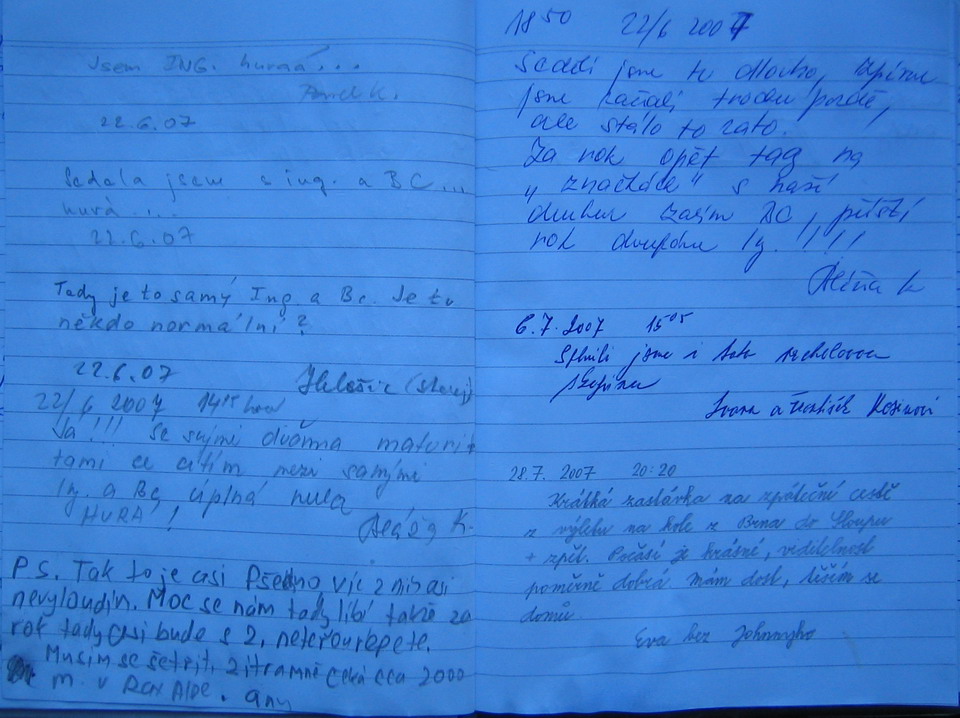 Jsem ING. huráá...
Pavel K.
22.6.07
Sedela jsem s ing. a BC...
hurá...
22.6.07
Tady je to samý Ing. a Bc. Je tu
někdo normální?
22.6.07
(starej)
22/6 2007 14¹⁵ hod
Já!!! Se svými dvěmma maturi-
tami se cítím mezi samými
Ing. a Bc. úplná nula
HURÁ!!
K.
P.S. Tak to je asi všedno, víc z nás asi
nevyloudin. Moc se nám tady líbí takže za
rok tady asi bude s 2,
Musím se šetřit, zítra mně čeká cca 2000
m. v Rax Alpe. any
18⁵⁰ 22/6 2007
Seděli jsme tu dlouho,
jsme začali trochu pozdě,
ale stálo to zato.
Za rok opět tag na
„značkáče" s naší
druhou zasim BC, příští
rok Ig.!!!!
Alena K
6.7.2007 15⁰⁵
Splnili jsme i tuto
a František
28.7. 2007 20:20
Krátká zastávka na zpáteční cestě
z výletu na kole z Brna do Sloupu
+ zpět. Počasí je krásné, viditelnost
poměrně dobrá mám dost, těším se
domů
Eva bez Johnnyho